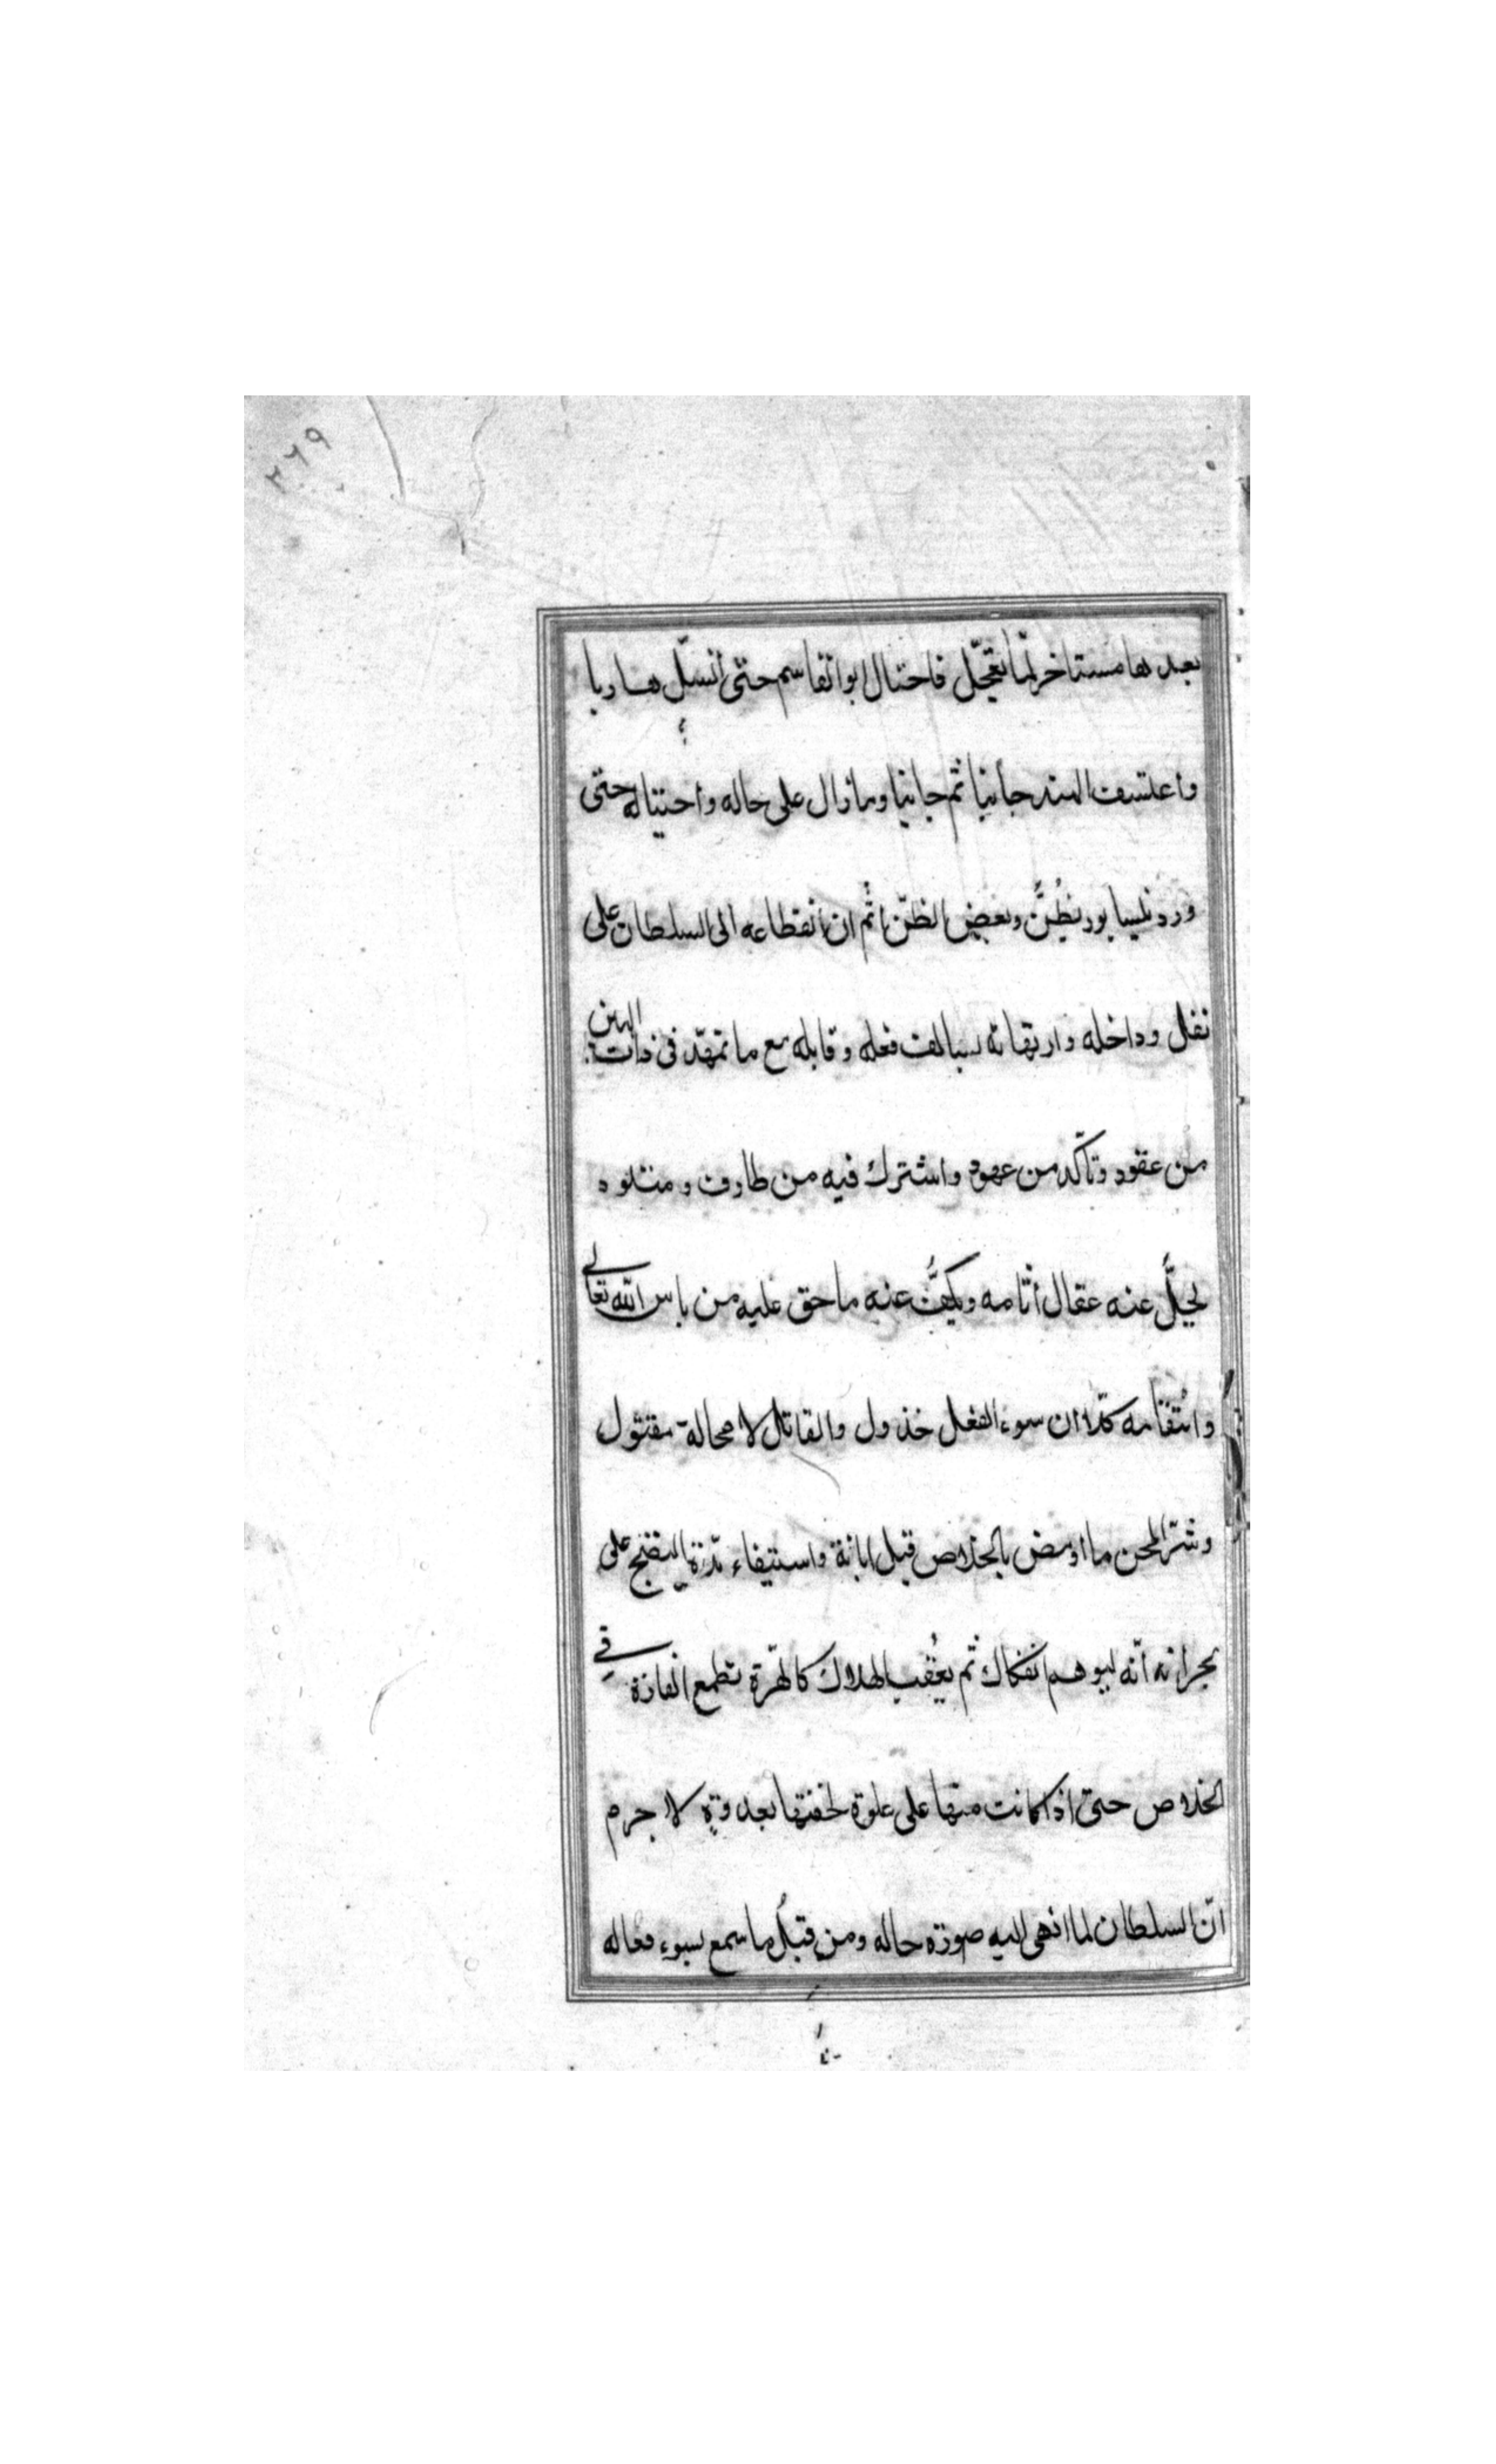 ٢٦٩
بعدها مستاخر لما تعجّل فاحتال ابوالقاسم حتى أنسلّ هاربا
واعتسف السند جانبا ثم جانبا وما زال على حاله واحتياله حتى
ورد نيسابور يظنّ وبعض الظنّ اثم ان انقطاعه الى السلطان على
نغل وداخله وارتهانه بسالف فعله وقابله مع ما تمهّد فى ذات البين
من عقود وتأكّد من عهود واشترك فيه من طارف ومتلود
يحلّ عنه عقال أثامه ويكفّ عنه ما حق عليه من باس الله تعالى
وانتقامه كلّا ان سوء الفعل خذول والقاتل لا محالة مقتول
وشرّ المحن ما اومض بالخلاص قبل ابانة واستيفاء مدّة النضج على
بحرانه انّه ليوهم انفكاك ثم يعقب الهلاك كالهرّة تطمع الفارة في
الخلاص حتى اذا كانت منها على علوة لخفتها بعدوة لا جرم
انّ السلطان لما انهى اليه صورة حاله ومن قبل ما سمع بسوء فعاله